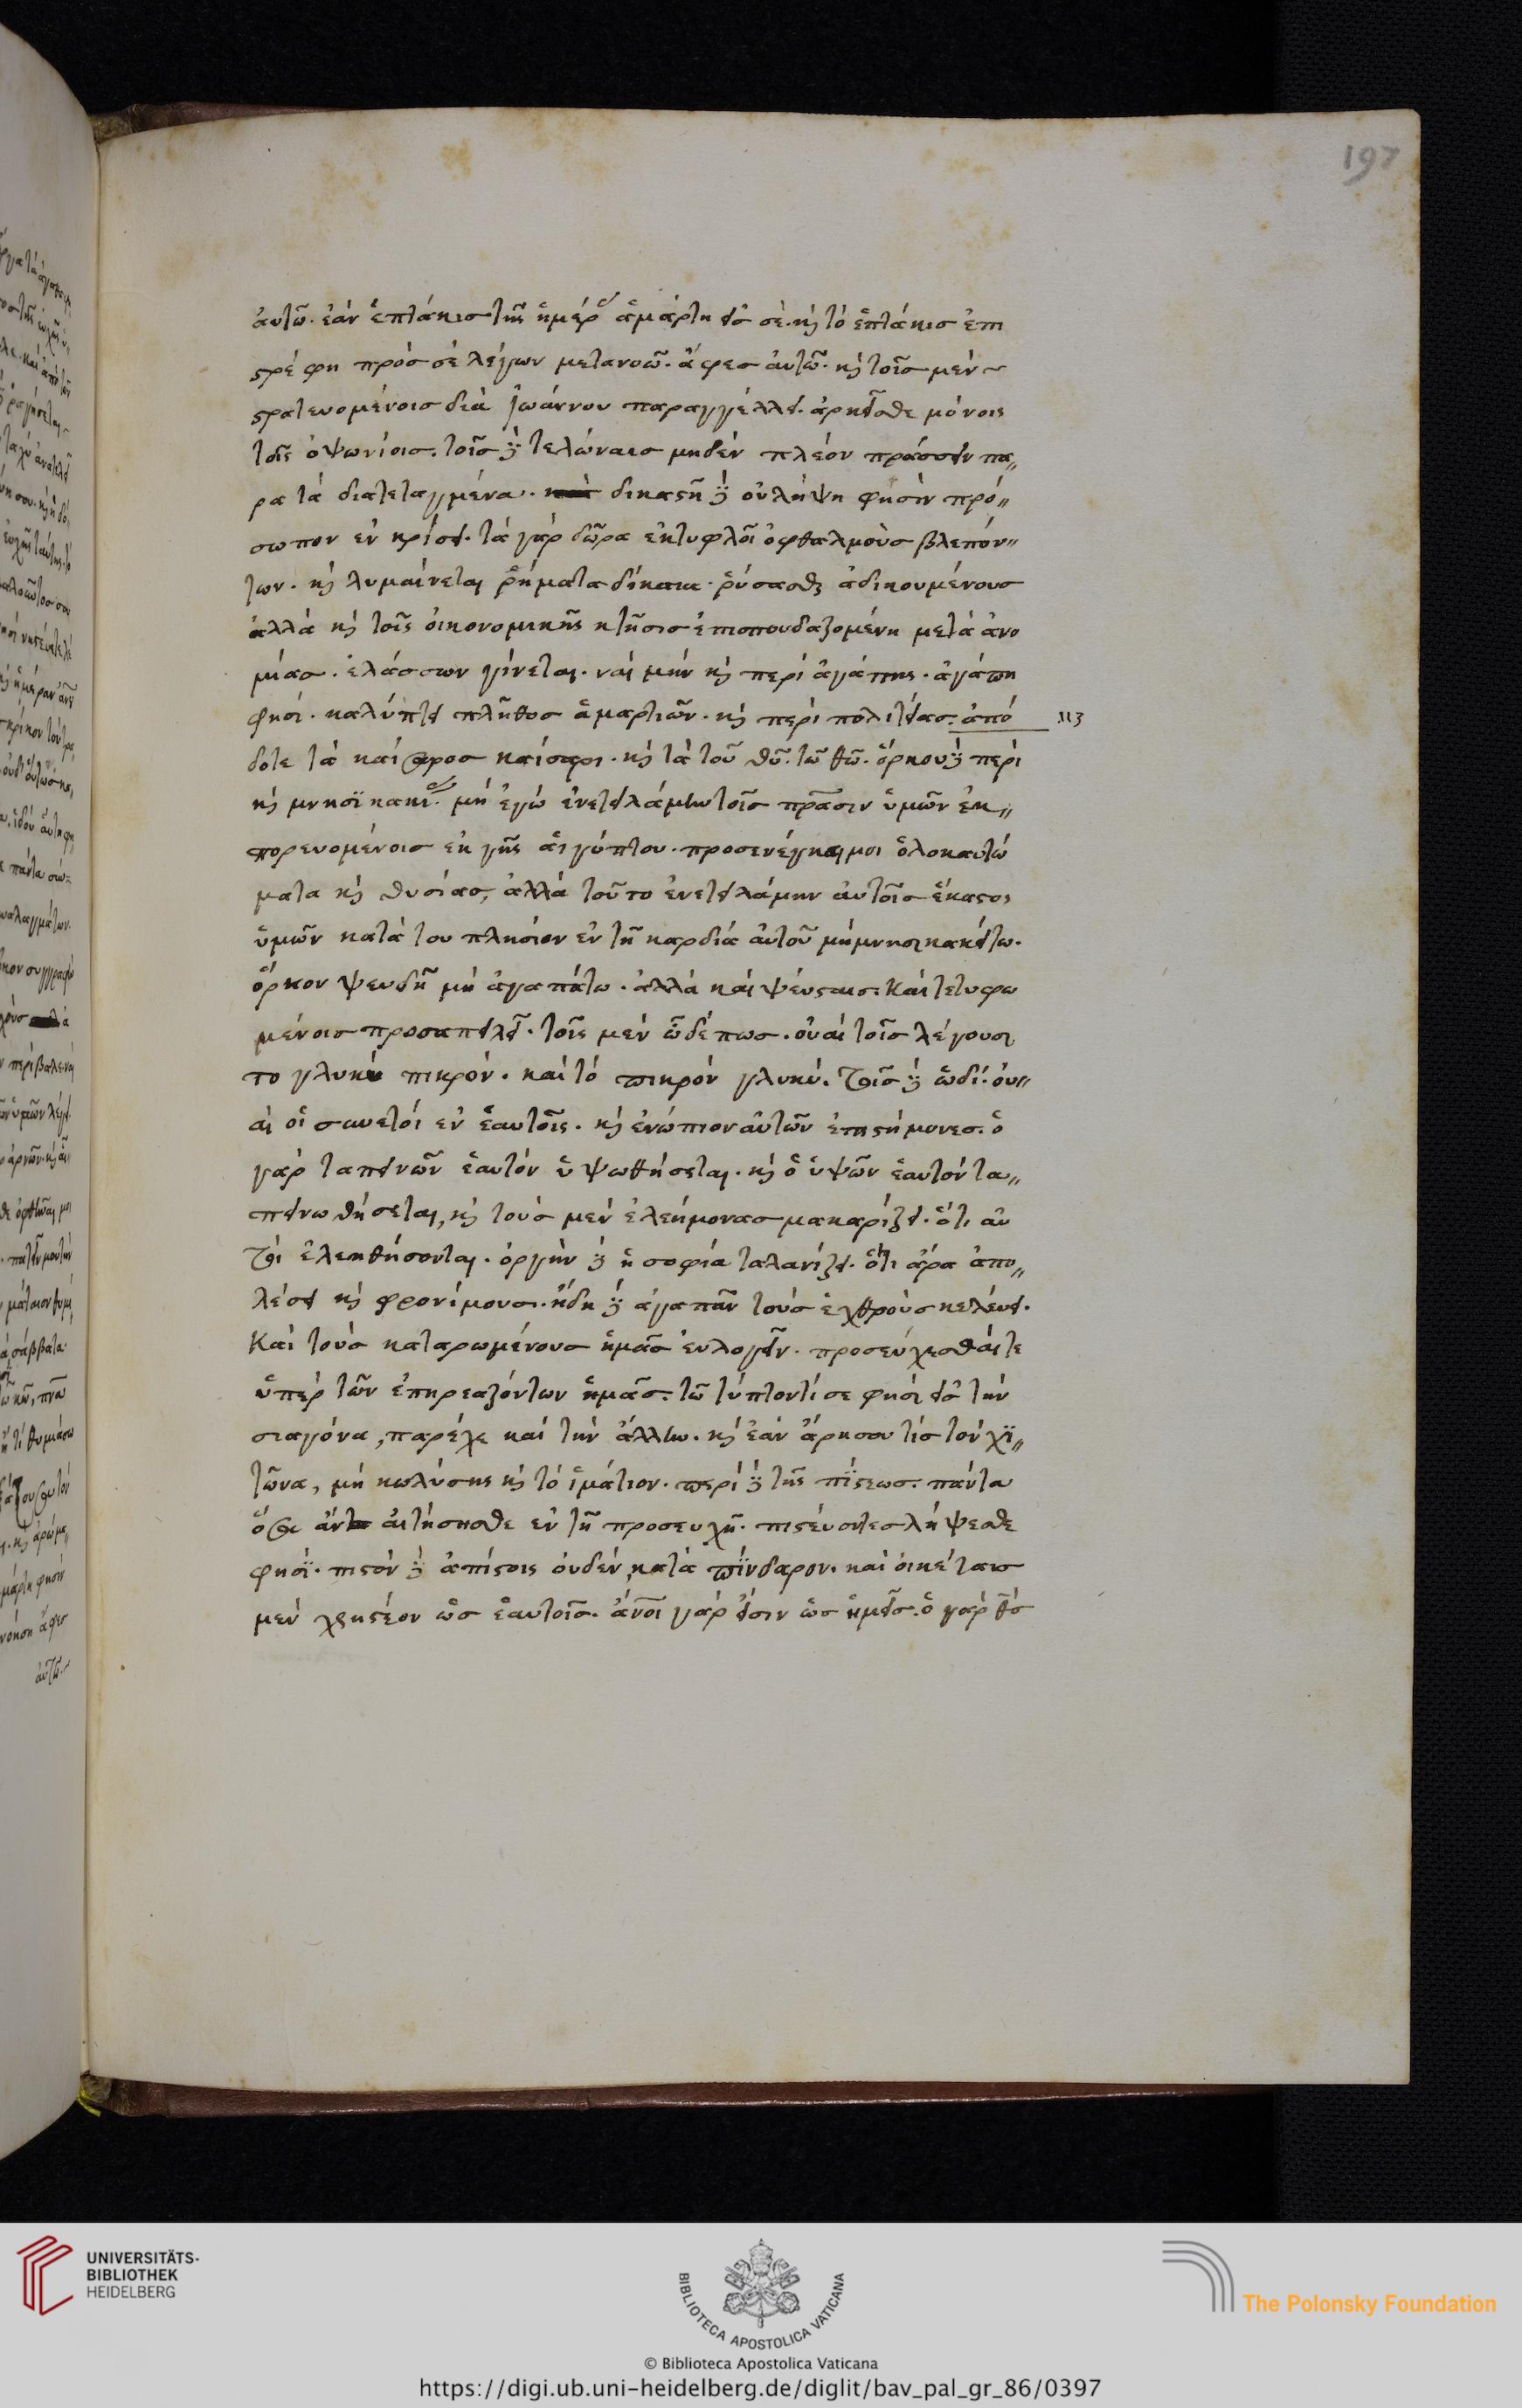 197
αὐτῶ. ἐὰν ἑπτάκισ τῆς ἡμέρασ ἁμάρτη εἰσ σὲ. κỳ τὸ ἑπτάκισ ἐπι
στρέφη πρὸσ σὲ λέγων μετανοῶ. ἄφεσ ἀυτῶ. κỳ τοῖσ μὲν
στρατευομένοισ διὰ ἰωάννου παραγγέλλει. ἀρκεῖσθε μόνοις
τοῖς ὀψωνίοισ. τοῖσ δὲ τελώναισ μηδὲν πλέον πράσσειν πα„
ρα τὰ διατεταγμένα. δικαστῆ δὲ οὐ λήψη φησὶν πρό„
σωπον ἐν κρίσει. τὰ γὰρ δῶρα ἐκτυφλοῖ ὀφθαλμοὺσ βλεπόν„
των. κỳ λυμαίνεται ῥήματα δίκαια. ῥύσασθε ἀδικουμένουσ
ἀλλὰ κỳ τοῖς ὀικονομικῆς κτῆσισ ἐπισπουδαζομένη μετὰ ἀνο
μίασ. ἐλάσσων γίνεται. ναὶ μὴν κỳ περὶ ἀγάπης. ἀγάπη
φησί. καλύπτει πλῆθοσ ἁμαρτιῶν. κỳ περὶ πολιτείασ. ἀπό
113
δοτε τὰ καίσαροσ καίσαρι. κỳ τὰ τοῦ θῦ. τῶ θῶ. ὅρκου δὲ περὶ
κỳ μνησϊκακίασ. μὴ ἐγὼ ἐνετειλάμην τοῖσ πρᾶσιν ὑμῶν ἐκ„
πορευομένοισ ἐκ γῆς ἀιγύπτου. προσενέγκαι μοι ὁλοκαυτώ
ματα κỳ θυσίασ, ἀλλὰ τοῦτο ἐνετειλάμην ἀυτοῖσ ἕκαστος
ὑμῶν κατὰ του πλησίον ἐν τῆ καρδία ἀυτοῦ μὴ μνησικακείτω.
ὅρκον ψευδῆ μὴ ἀγαπάτω. ἀλλὰ καὶ ψεύσταισ. Καὶ τετυφω
μένοισ προσαπειλεῖ. τοῖς μὲν ὧδέ πωσ. οὐαὶ τοῖσ λέγουσι
το γλυκὺ πικρόν. καὶ τὸ πικρὸν γλυκύ. τοῖσ δὲ ὡδί. ὀυ„
αὶ οἱ συνετοὶ ἐν ἑαυτοῖς. κỳ ἐνώπιον ἁυτῶν ἐπιστήμονεσ. ὁ
γὰρ ταπεινῶν ἑαυτὸν ὑψωθήσεται. κỳ ὁ ὑψῶν ἑαυτὸν τα„
πεινωθήσεται, κỳ τοὺσ μὲν ἐλεήμονασ μακαρίζει. ὅτι αὐ
τοὶ ἐλεηθήσονται. ὀργὴν δὲ ἡ σοφία ταλανίζει. ὅτι ἄρα ἀπο„
λέσει κỳ φρονίμουσ. ἤδη δὲ ἀγαπᾶν τοὺσ ἐχθροὺσ κελέυει.
Καὶ τοὺσ καταρωμένουσ ἡμᾶσ ἐυλογεῖν. προσεύχεσθαί τε
ὑπὲρ τῶν ἐπηρεαζόντων ἡμᾶσ. τῶ τύπτοντί σε φησὶ εἰσ τὴν
σιαγόνα, παρέχε καὶ τὴν ἄλλην. κỳ ἐὰν ἄρη σου τίσ τὸν χϊ„
τῶνα, μὴ κωλύσης κỳ τὸ ἱμάτιον. περὶ δὲ τῆς πίστεωσ. πάντα
ὅσα ἂν ἀιτήσησθε ἐν τῆ προσευχῆ. πιστέυοντεσ λήψεσθε
φησΐ. πιστὸν δὲ ἀπίστοις ὀυδὲν, κατὰ πίνδαρον. καὶ ὀικέταισ
μὲν χρηστέον ὡσ ἑαυτοῖσ. ἄνοι γάρ εἰσιν ὡσ ἡμεῖσ. ὁ γὰρ θσ
UNIVERSITÄTS-
BIBLIOTHEK
HEIDELBERG
BIBLIOTECA APOSTOLICA VATICANA
The Polonsky Foundation
© Biblioteca Apostolica Vaticana
https://digi.ub.uni-heidelberg.de/diglit/bav_pal_gr_86/0397